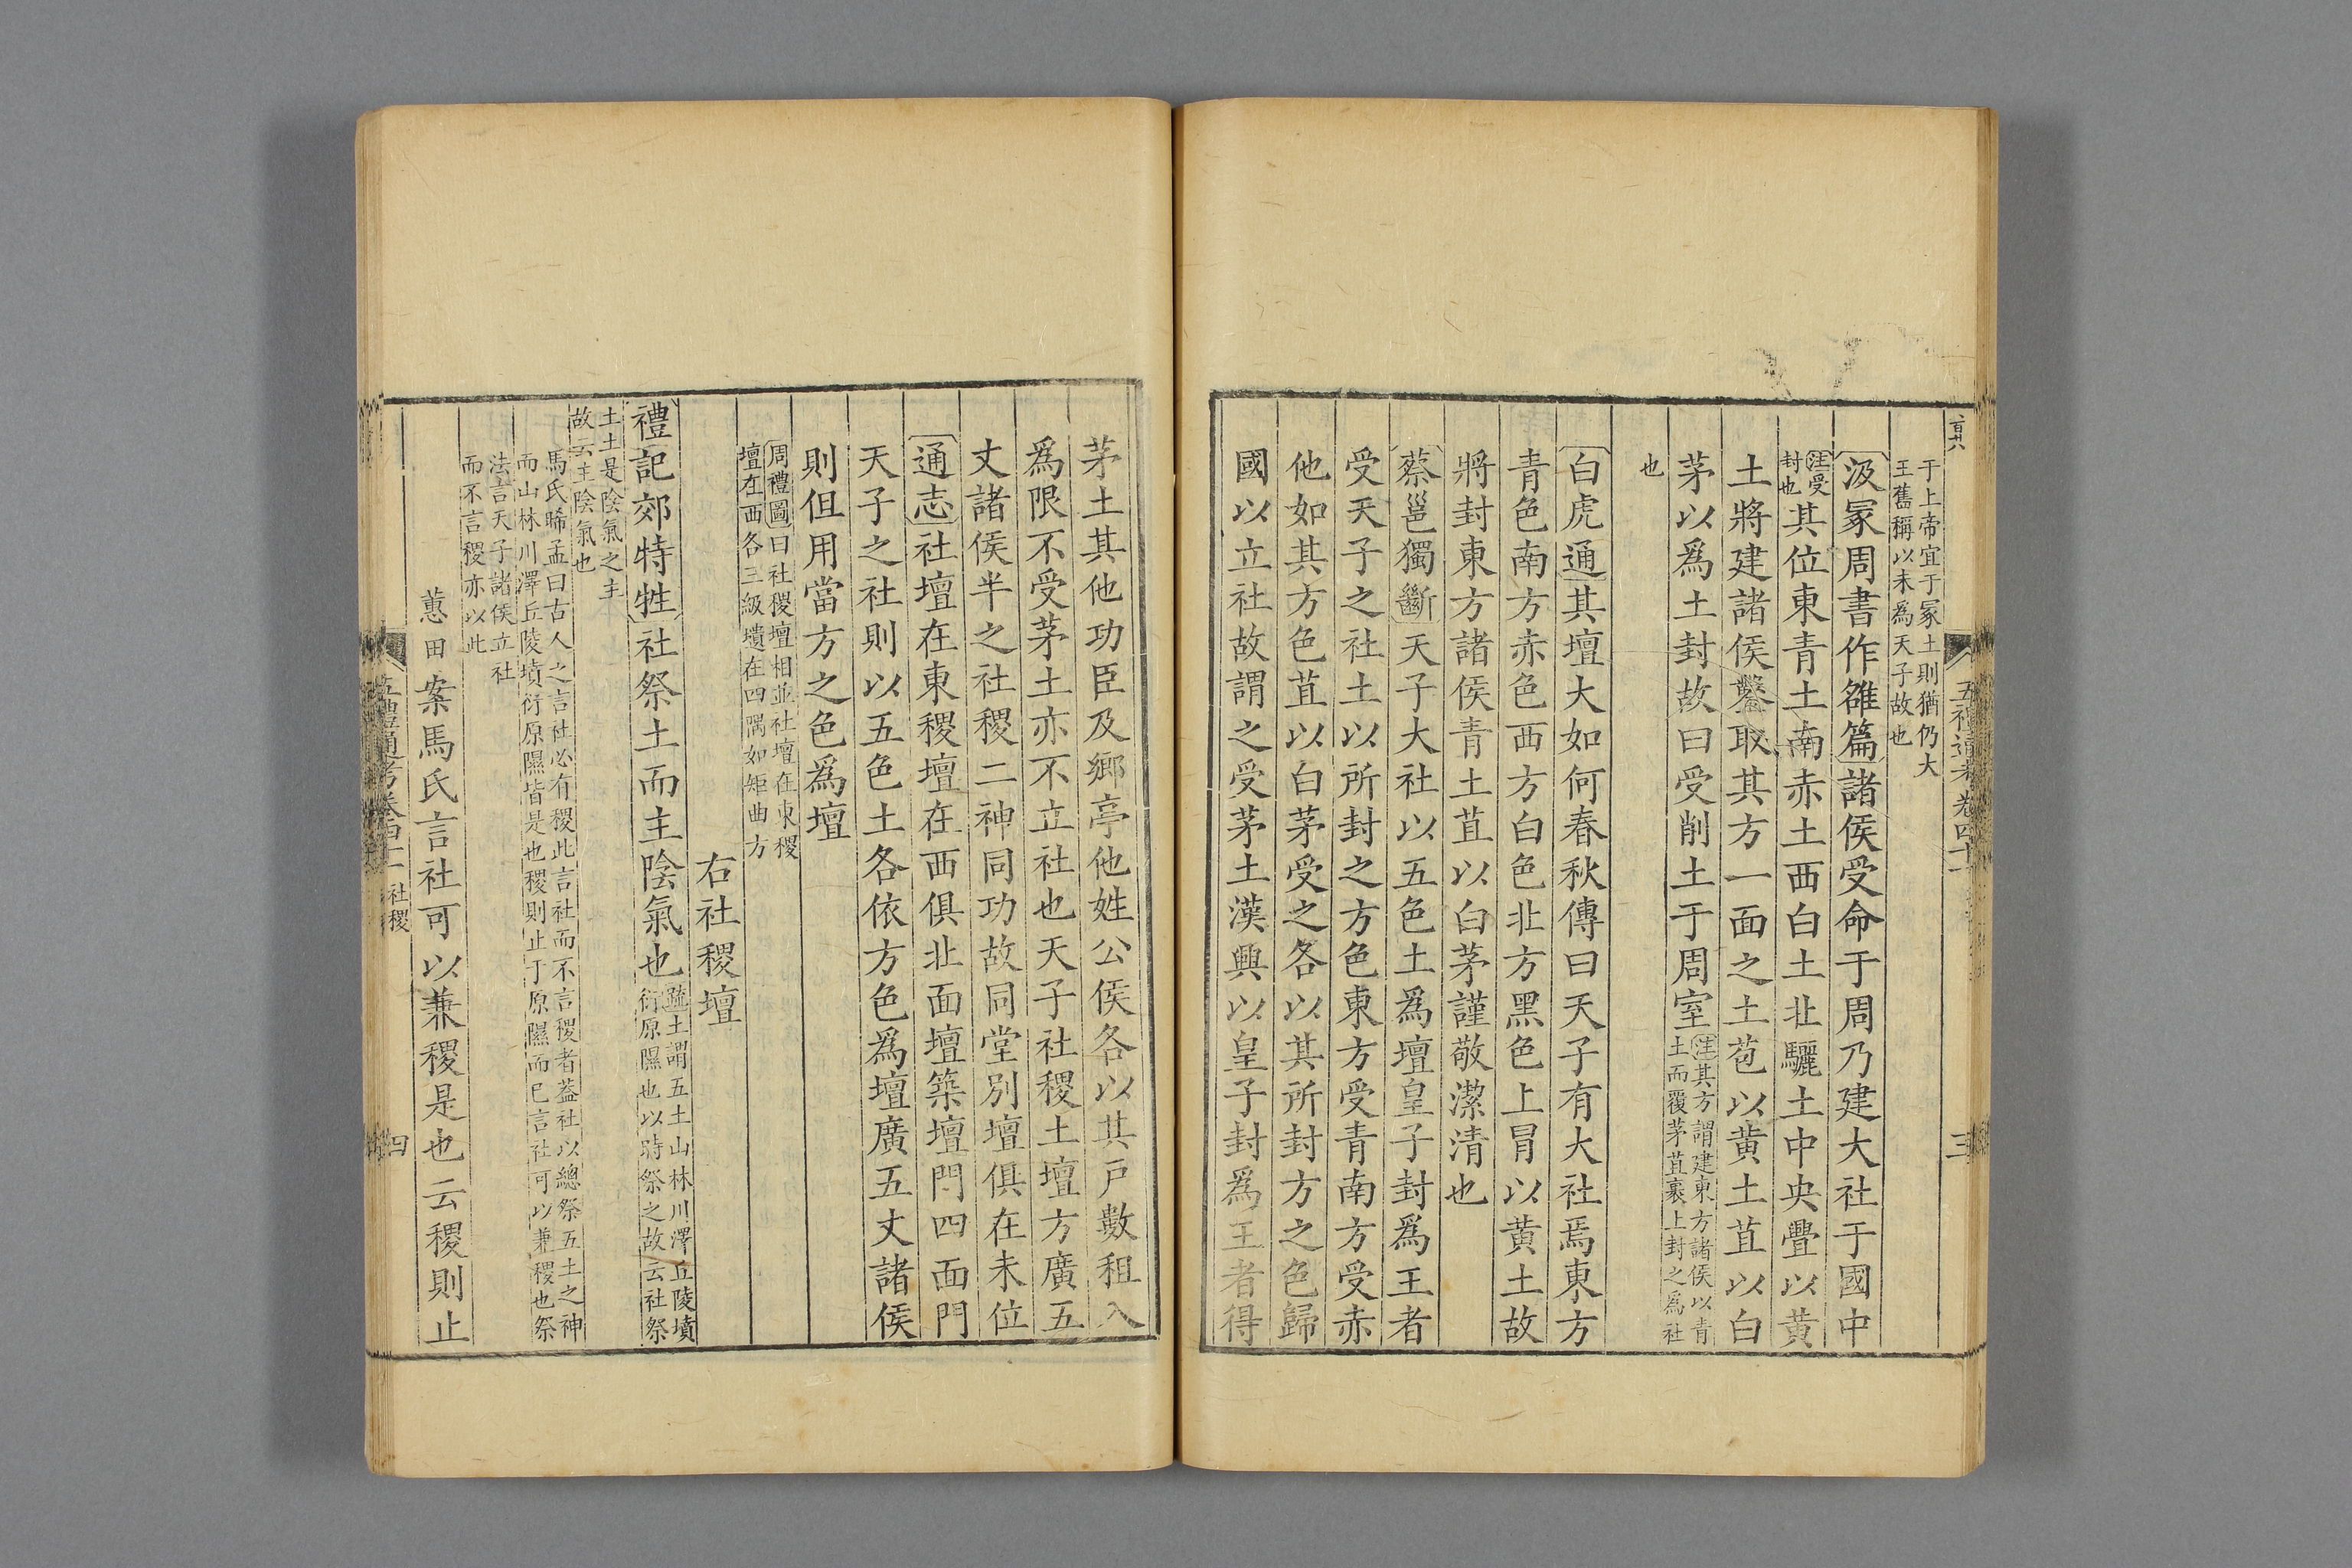 于上帝宜于冡土則猶仍大
王舊稱以未為天子故也
汲冡周書作雒篇諸侯受命于周乃建大社于國中
注受封也其位東青土南赤土西白土北驪土中央疊以黄
土將建諸侯鑿取其方一面之土苞以黄土苴以白
茅以爲土封故曰受削土于周室注其方謂建東方諸侯以青土而覆茅苴裹土封之爲社
也
白虎通其壇大如何春秋傳曰天子有大社焉東方
青色南方赤色西方白色北方黑色上冒以黄土故
將封東方諸侯青土苴以白茅謹敬潔清也
蔡邕獨斷天子大社以五色土爲壇皇子封爲王者
受天子之社土以所封之方色東方受青南方受赤
他如其方色苴以白茅受之各以其所封方之色歸
國以立社故謂之受茅土漢興以皇子封爲王者得
三
茅土其他功臣及鄉亭他姓公侯各以其戶數租入
爲限不受茅土亦不立社也天子社稷土壇方廣五
丈諸侯半之社稷二神同功故同堂別壇俱在未位
通志社壇在東稷壇在西俱北面壇築壇門四面門
天子之社則以五色土各依方色爲壇廣五丈諸侯
則但用當方之色爲壇
周禮圖曰社稷壇相並社壇在東稷
壇在西各三級壝在四隅如矩曲方
右社稷壇
禮記郊特牲社祭土而主陰氣也疏土謂五土山林川澤丘陵墳衍原隰也以時祭之故云社祭
土土是陰氣之主
故云主陰氣也
馬氏晞孟曰古人之言社必有稷此言社而不言稷者葢社以總祭五土之神
而山林川澤丘陵墳衍原隰皆是也稷則止于原隰而已言社可以兼稷也祭
法言天子諸侯立社
而不言稷亦以此
蕙田案馬氏言社可以兼稷是也云稷則止
社稷
四